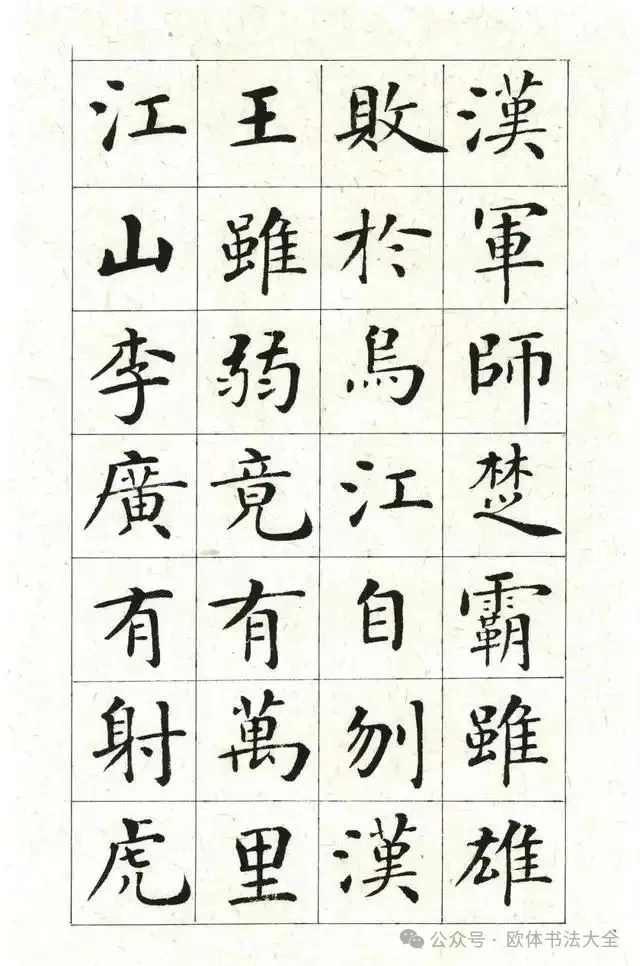 漢軍師楚霸雖雄
敗於烏江自刎漢
王雖弱竟有萬里
江山李廣有射虎
公众号·欧体书法大全